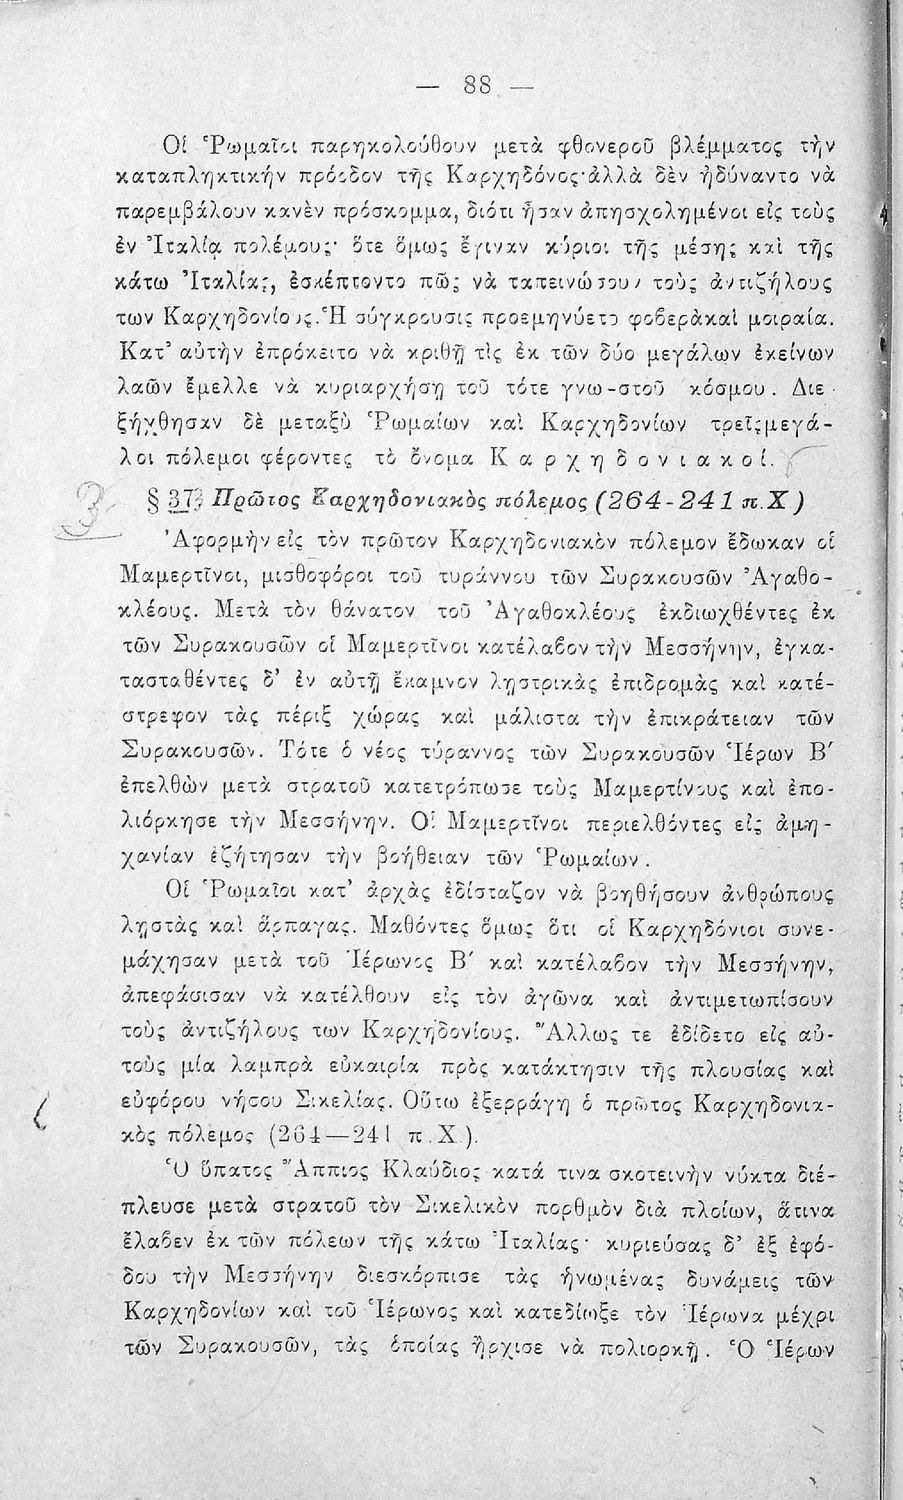 — 88 —
Οἱ Ῥωμαῖοι παρηκολούθουν μετὰ φθονεροῦ βλέμματος τὴν
καταπληκτικήν πρόοδον τῆς Καρχηδόνος· ἀλλὰ δὲν ἠδύναντο νὰ
παρεμβάλουν κανὲν πρόσκομμα, διότι ἦσαν ἀπησχολημένοι εἰς τοὺς
ἐν Ἰταλίᾳ πολέμους· ὅτε ὅμως ἔγιναν κύριοι τῆς μέσης καὶ τῆς
κάτω Ἰταλίας, ἐσκέπτοντο πῶς νὰ ταπεινώσουν τοὺς ἀντιζήλους
των Καρχηδονίους. Ἡ σύγκρουσις προεμηνύετο φοβερὰ καὶ μοιραία.
Κατ' αὐτὴν ἐπρόκειτο νὰ κριθῇ τὶς ἐκ τῶν δύο μεγάλων ἐκείνων
λαῶν ἔμελλε νὰ κυριαρχήσῃ τοῦ τότε γνω-στοῦ κόσμου. Διε
ξήχθησαν δὲ μεταξὺ Ῥωμαίων καὶ Καρχηδονίων τρεῖς μεγά-
λοι πόλεμοι φέροντες τὸ ὄνομα Κ α ρ χ η δ ο ν ι α κ ο ί.
3
§ 37 Πρῶτος Καρχηδονιακὸς πόλεμος (264-241 π.Χ)
Ἀφορμὴν εἰς τὸν πρῶτον Καρχηδονιακὸν πόλεμον ἔδωκαν οἱ
Μαμερτῖνοι, μισθοφόροι τοῦ τυράννου τῶν Συρακουσῶν Ἀγαθο-
κλέους. Μετὰ τὸν θάνατον τοῦ Ἀγαθοκλέους ἐκδιωχθέντες ἐκ
τῶν Συρακουσῶν οἱ Μαμερτῖνοι κατέλαβον τὴν Μεσσήνην, ἐγκα-
τασταθέντες δ' ἐν αὐτῇ ἔκαμνον λῃστρικὰς ἐπιδρομὰς καὶ κατέ-
στρεφον τὰς πέριξ χώρας καὶ μάλιστα τὴν ἐπικράτειαν τῶν
Συρακουσῶν. Τότε ὁ νέος τύραννος τῶν Συρακουσῶν Ἱέρων Β΄
ἐπελθὼν μετὰ στρατοῦ κατετρόπωσε τοὺς Μαμερτίνους καὶ ἐπο-
λιόρκησε τὴν Μεσσήνην. Οἱ Μαμερτῖνοι περιελθόντες εἰς ἀμη-
χανίαν ἐζήτησαν τὴν βοήθειαν τῶν Ῥωμαίων.
Οἱ Ῥωμαῖοι κατ' ἀρχὰς ἐδίσταζον νὰ βοηθήσουν ἀνθρώπους
λῃστὰς καὶ ἅρπαγας. Μαθόντες ὅμως ὅτι οἱ Καρχηδόνιοι συνε-
μάχησαν μετὰ τοῦ Ἱέρωνος Β΄ καὶ κατέλαβον τὴν Μεσσήνην,
ἀπεφάσισαν νὰ κατέλθουν εἰς τὸν ἀγῶνα καὶ ἀντιμετωπίσουν
τοὺς ἀντιζήλους των Καρχηδονίους. Ἄλλως τε ἐδίδετο εἰς αὐ-
τοὺς μία λαμπρὰ εὐκαιρία πρὸς κατάκτησιν τῆς πλουσίας καὶ
εὐφόρου νήσου Σικελίας. Οὕτω ἐξερράγη ὁ πρῶτος Καρχηδονια-
κὸς πόλεμος (264—241 π.Χ).
Ὁ ὕπατος Ἄππιος Κλαύδιος κατά τινα σκοτεινὴν νύκτα διέ-
πλευσε μετὰ στρατοῦ τὸν Σικελικὸν πορθμὸν διὰ πλοίων, ἅτινα
ἔλαβεν ἐκ τῶν πόλεων τῆς κάτω Ἰταλίας· κυριεύσας δ' ἐξ ἐφό-
δου τὴν Μεσσήνην διεσκόρπισε τὰς ἡνωμένας δυνάμεις τῶν
Καρχηδονίων καὶ τοῦ Ἱέρωνος καὶ κατεδίωξε τὸν Ἱέρωνα μέχρι
τῶν Συρακουσῶν, τὰς ὁποίας ἤρχισε νὰ πολιορκῇ. Ὁ Ἱέρων